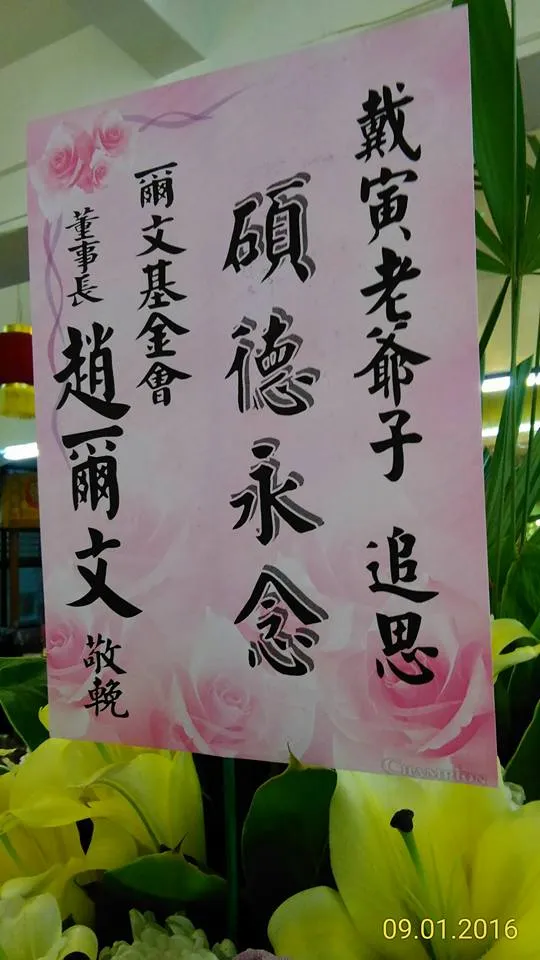 戴寅老爺子 追思
碩德永念
爾文基金會
董事長 趙爾文 敬輓
CHAMPION
09.01.2016